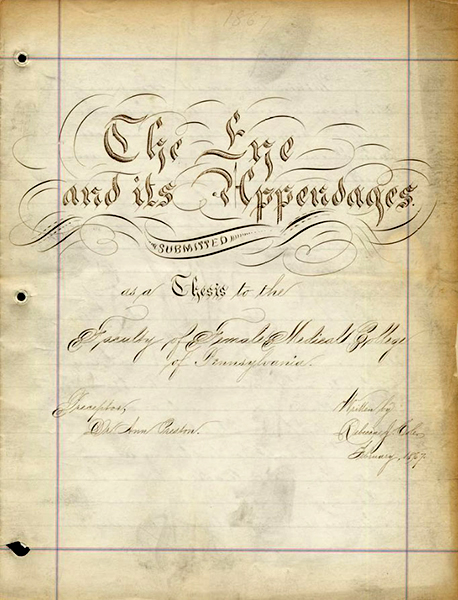 1867
The Eye
and its Appendages.
SUBMITTED
as a Thesis to the
Faculty of Female Medical College
of Pennsylvania.
Preceptor,
Dr Ann Preston.
Written by
Rebecca J. Cole.
February, 1867.